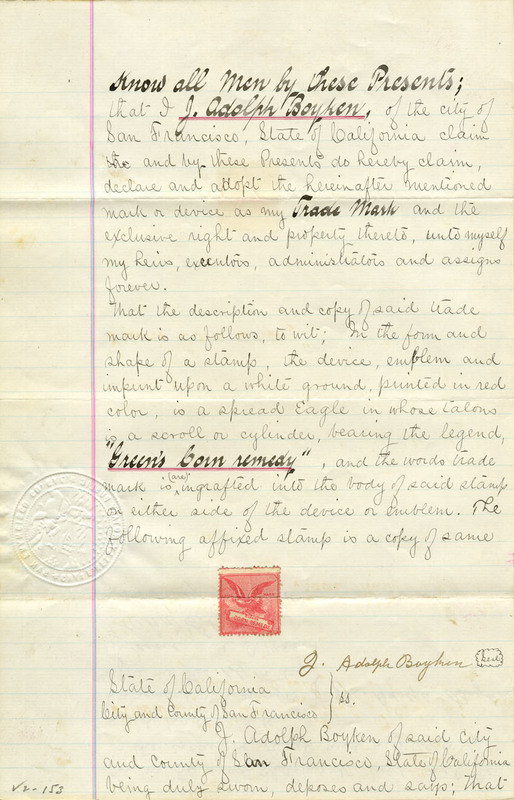 Know all Men by these Presents;
that I J. Adolph Boyken, of the city of
San Francisco, State of California claim
and by these Presents do hereby claim,
declare and adopt the hereinafter mentioned
mark or device as my Trade Mark and the
exclusive right and property thereto, unto myself
my heirs, executors, administrators and assigns
forever.
That the description and copy of said trade
mark is as follows, to wit; In the form and
shape of a stamp, the device, emblem and
imprint upon a white ground, printed in red
color, is a spread Eagle in whose talons
is a scroll or cylinder, bearing the legend,
"Green's Corn remedy", and the words trade
mark is (are) ingrafted into the body of said stamp
on either side of the device or emblem. The
following affixed stamp is a copy of same
J. Adolph Boyken Seal
State of California
City and County of San Francisco } ss.
J. Adolph Boyken of said city
and County of San Francisco, State of California
being duly sworn, deposes and says; that
V2-153